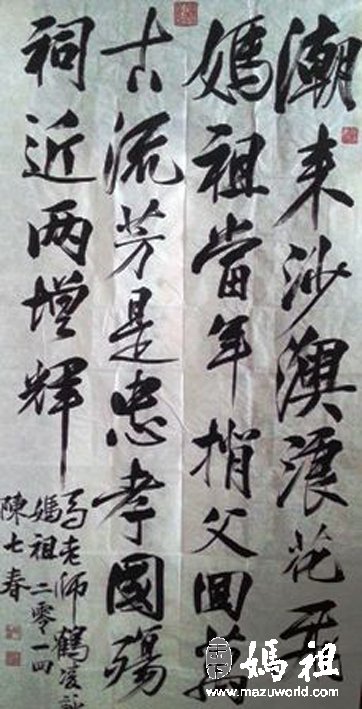 潮来沙澳浪花飛
媽祖當年捎父回萬
古流芳是忠孝國殤
祠近两增輝
馬老師鶴凌詠
媽祖二零一四
陳七春
天下
媽祖
www.mazuworld.com